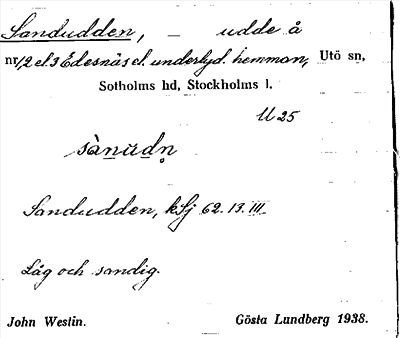 Sandudden, – udde å
nr 1/2 el. 3 Edesnäs el. underlyd. hemman, Utö sn,
Sotholms hd, Stockholms l.
U 25
sànu̱dn̥
Sandudden, kSj 62. 13. III
Låg och sandig.
John Westin. Gösta Lundberg 1938.